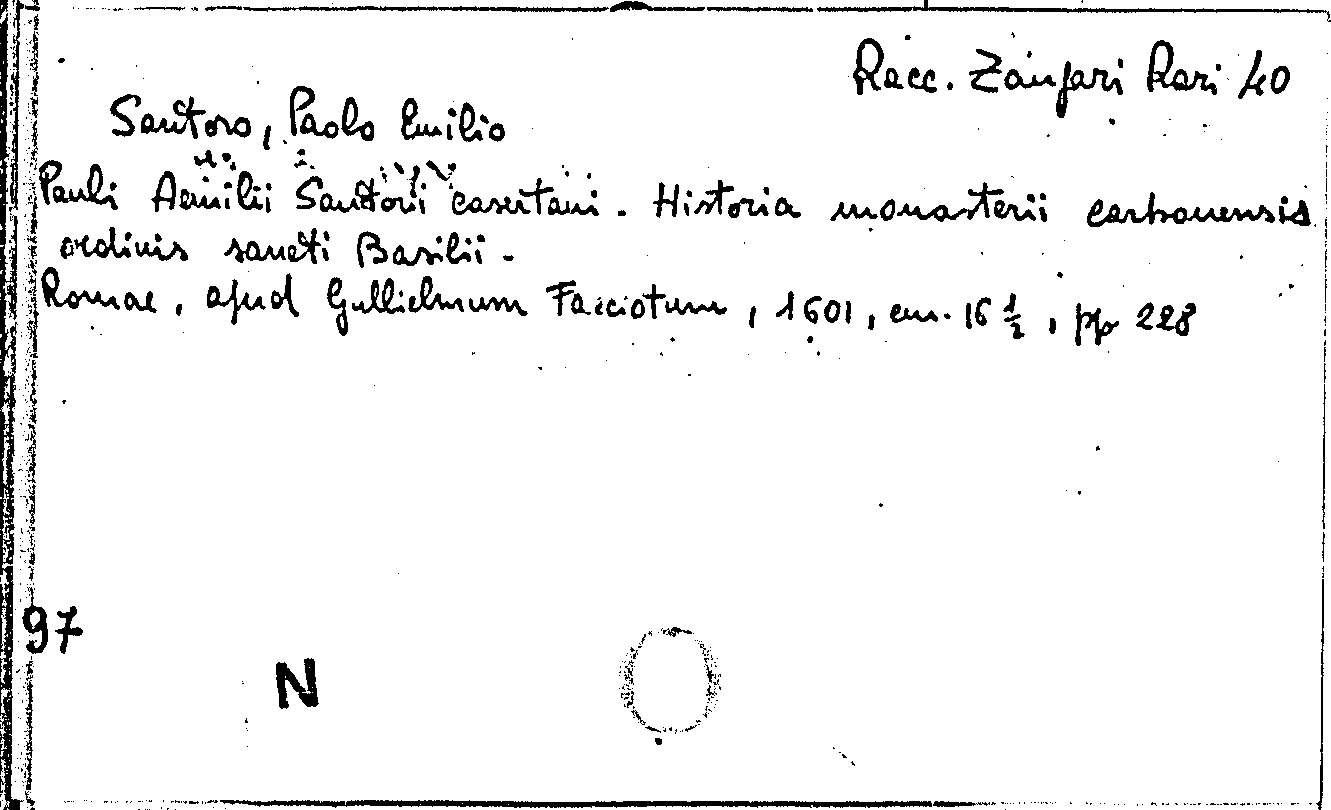 Racc. Zanfari Rari 40
Santoro, Paolo Emilio
Pauli Aemilii Santorii casertani. Historia monasterii carbonensis
ordinis sancti Basilii.
Romae, apud Gullielmum Facciotum, 1601, cm. 16 ½, pp 228
97
N